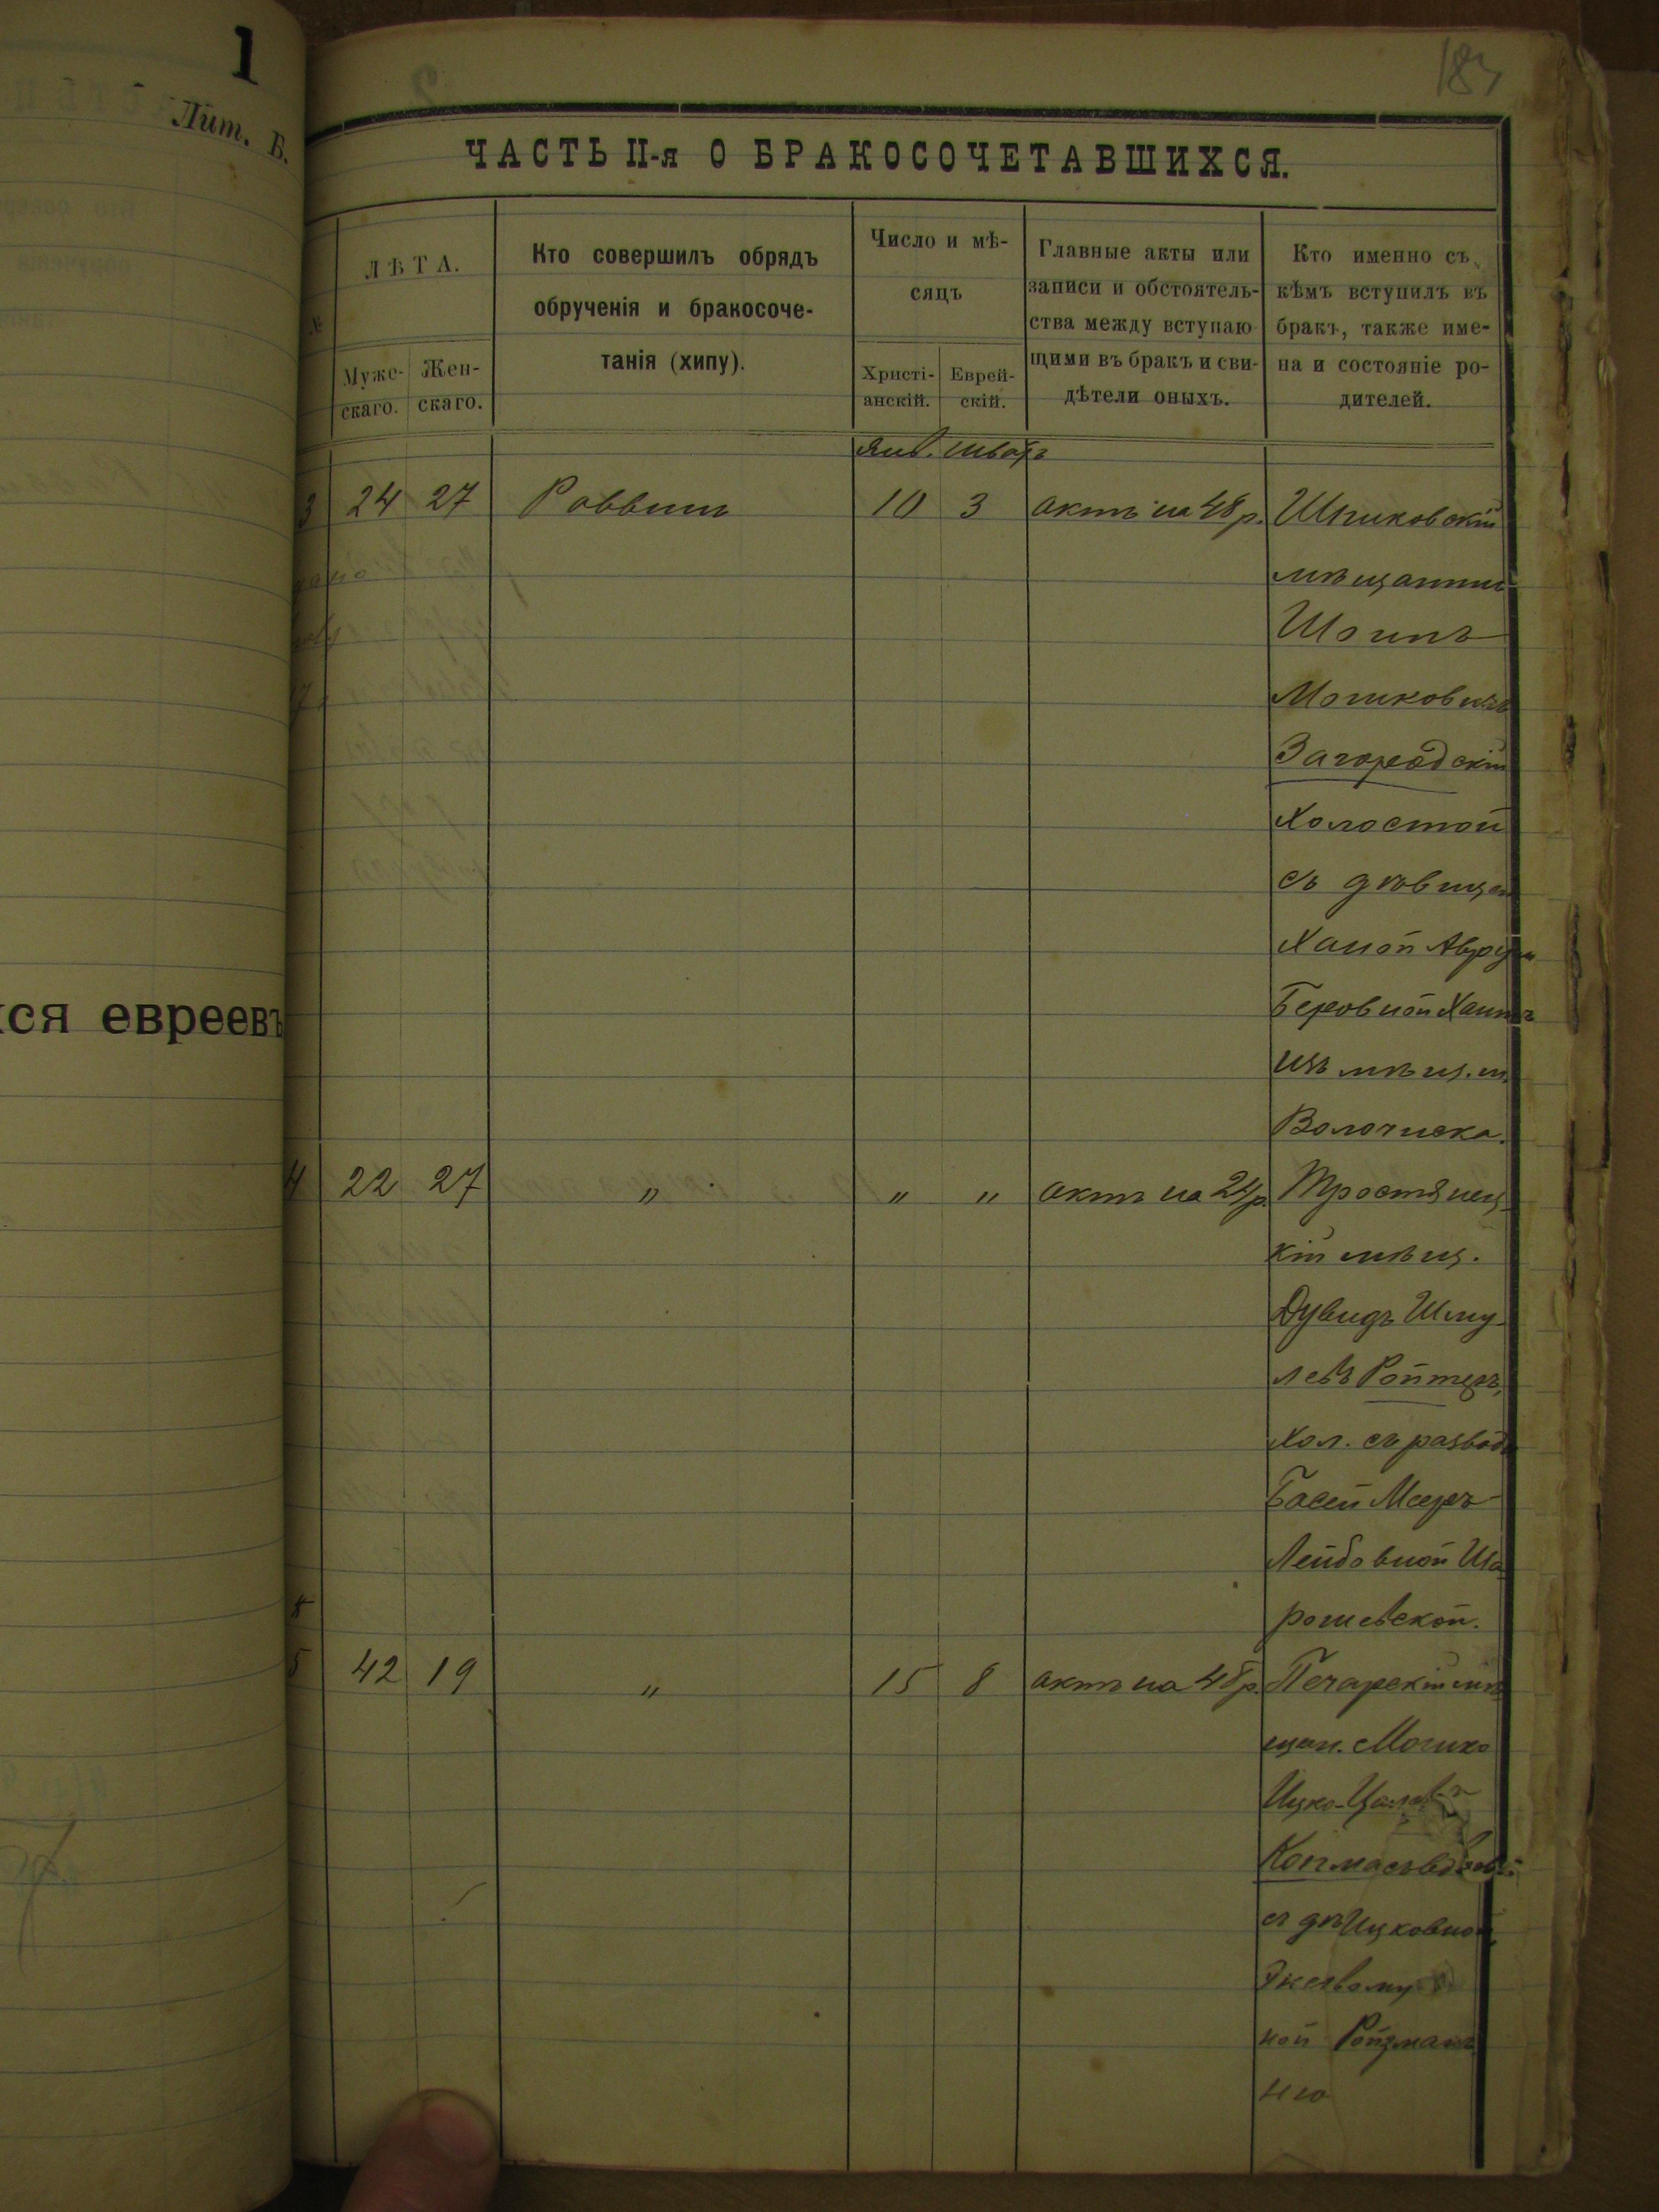 1
Лит. Б.
ся евреевъ
183
ЧАСТЬ II-я О БРАКОСОЧЕТАВШИХСЯ.
ЛѢТА.
Муже-
скаго.
Жен-
скаго.
Кто совершилъ обрядъ
обрученія и бракосоче-
танія (хипу).
Число и мѣ-
сяцъ
Христі-
анскій.
Еврей-
скій.
Главные акты или
записи и обстоятель-
ства между вступаю
щими въ бракъ и сви-
дѣтели оныхъ.
Кто именно съ
кѣмъ вступилъ въ
бракъ, также име-
на и состояніе ро-
дителей.
Янв. Шватъ
3 24 27 Раввинъ 10 3 актъ на 48 р. Шпиковскій
мѣщанинъ
Мошковичъ
Загородскій
Холостой
съ дѣвицей
Ханой Аврум
Беровной
изъ мѣщ. м.
Волочиска.
4 22 27 " " " актъ на 24 р. Тростянец-
кій мѣщ.
Дувидъ Шму-
левъ Ройтеръ,
Хол. съ развод
Басей Мееръ-
Лейбовной Ша
рошевской.
5 42 19 " 15 8 актъ на 48 р. Печарскій мѣ
щан. Мошко
Ицко-
съ дѣ Ицковной
ной Ройзманъ